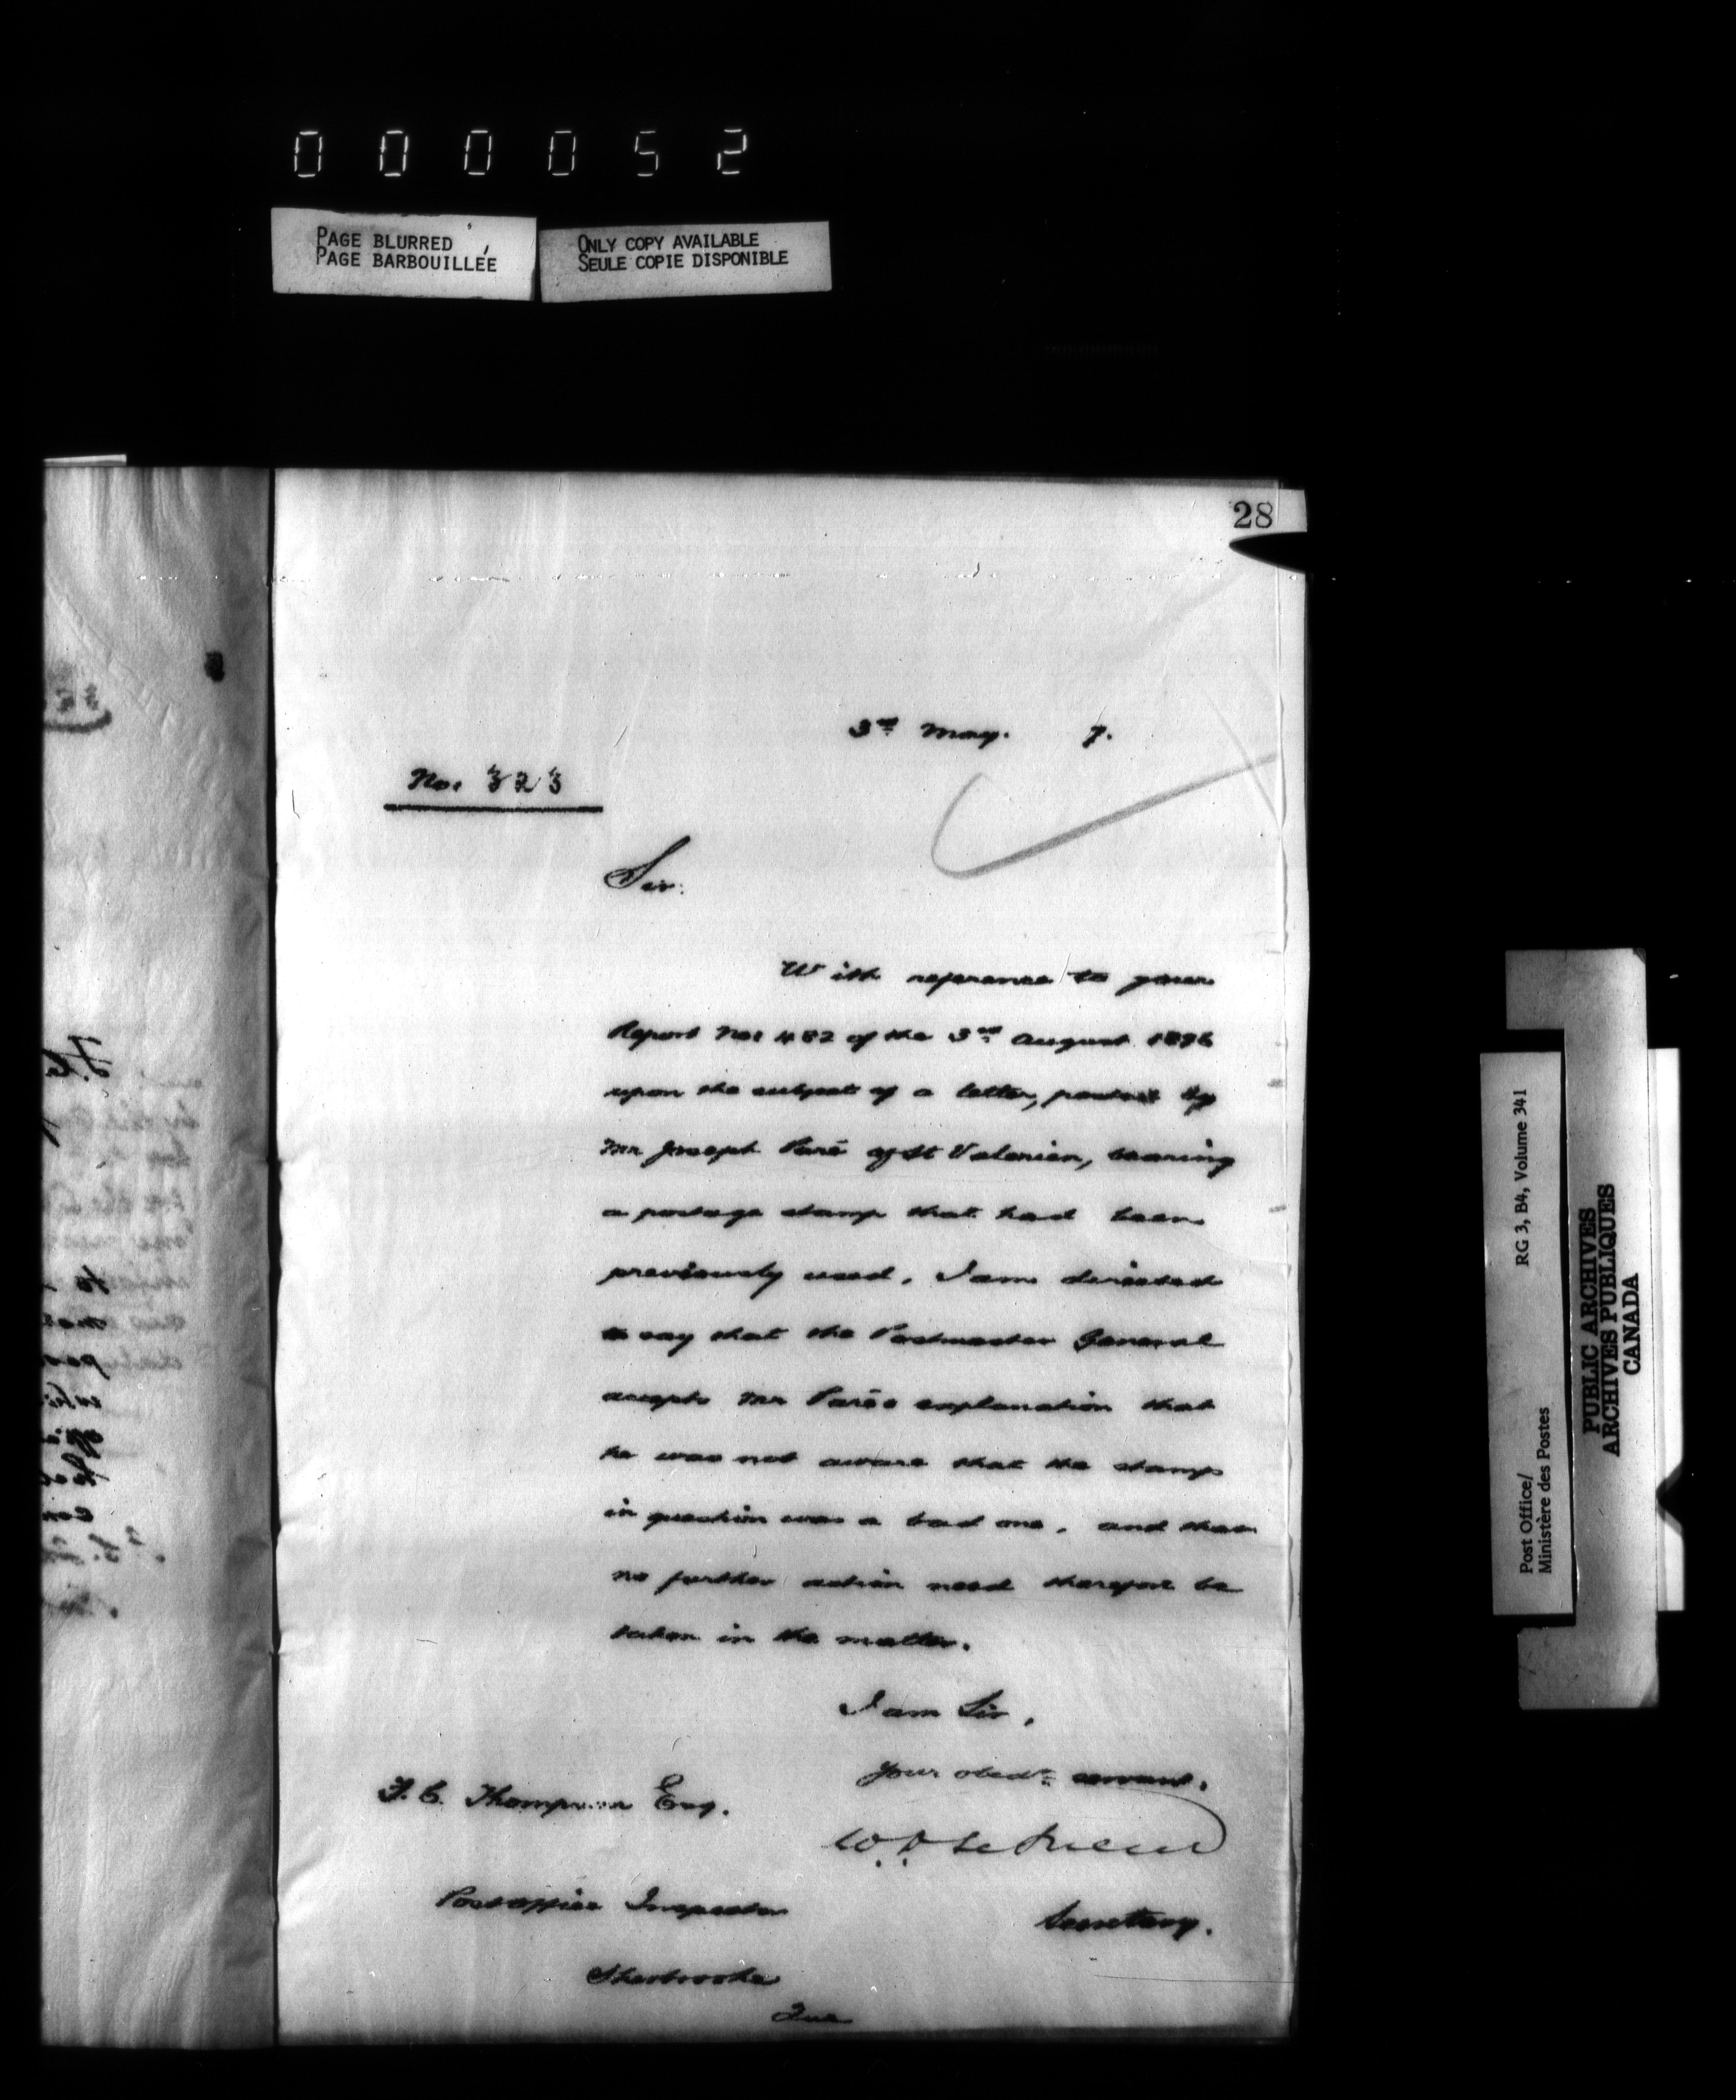 0 0 0 0 5 2
PAGE BLURRED
PAGE BARBOUILLÉE
ONLY COPY AVAILABLE
SEULE COPIE DISPONIBLE
28
3rd May. 7.
No: 323
Sir:
With reference to your
Report No: 482 of the 3rd August 1896
upon the subject of a letter, posted by
Mr Joseph Paré of St Valerien, bearing
a postage stamp that had been
previously used, I am directed
to say that the Postmaster General
accepts Mr Paré's explanation that
he was not aware that the stamp
in question was a bad one, and that
no further action need therefore be
taken in the matter.
I am Sir,
Your obedt servant,
Secretary.
Thompson Esq.
Post office Inspector
Sherbrooke
Que
Post Office/
Ministère des Postes
RG 3, B4, Volume 341
PUBLIC ARCHIVES
ARCHIVES PUBLIQUES
CANADA